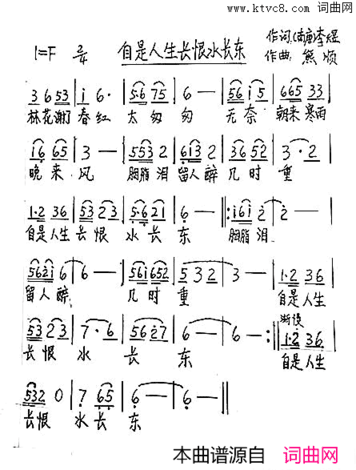 www.ktvc8.com 词曲网
1=F 2/4 自是人生长恨水长东 作词：(南唐)李煜
作曲：熊颀
3 6 5 3 | i 6· | 5·6 7 5 | 6 — | 5 6 i 5 | 6 6 5 3 3 |
林花谢了 春红 太匆匆 无奈 朝来寒雨
i 6 6 5 | 3 — | 5 5 3 2 | 6 1 3 2 | 3 6 5 2 | 3·2 |
晚来风 胭脂泪 留人醉 几时重
1·2 3 6 | 5 3 2 3 | 5·6 2 1 | 6 — |: i 6 i 2 | 2 — |
自是人生长恨 水长东 胭脂泪
5 6 2 i | 6 6 — | 5 6 i 6 5 2 | 5 3 2 | 3 — | 1·2 3 6 |
留人醉 几时重 自是人生
5 3 2 3 | 7·6 | 5 6 2 7 | 6 — | 6 — :| 渐慢 1·2 3 6 |
长恨 水 长 东 自是人生
5 3 2 0 | 7 6 5 | 6 — | 6 — ||
长恨 水长 东
本曲谱源自 词曲网